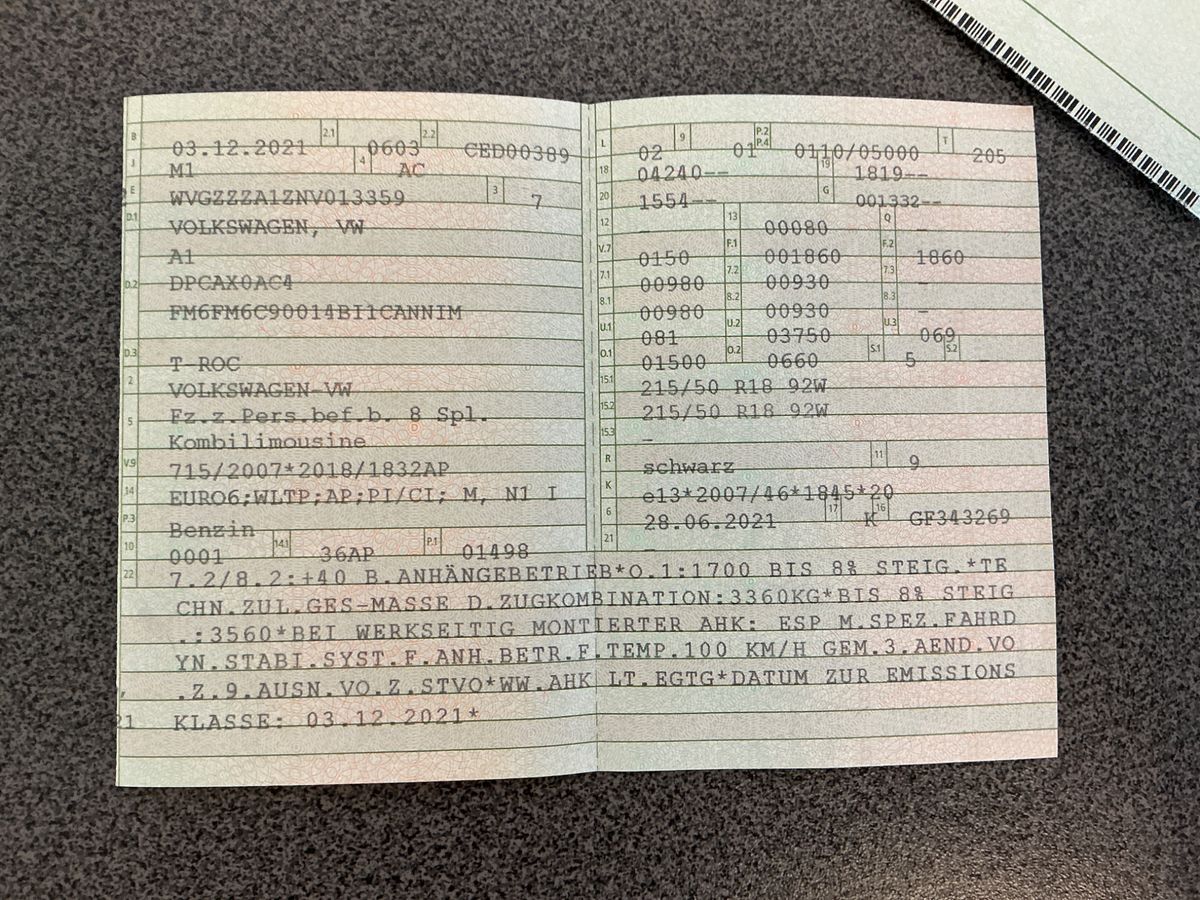 B 03.12.2021 2.1 0603 2.2 CED00389
J M1 4 AC
E WVGZZZA1ZNV013359 3 7
D.1 VOLKSWAGEN, VW
A1
D.2 DPCAX0AC4
FM6FM6C90014BI1CANNIM
D.3 T-ROC
2 VOLKSWAGEN-VW
5 Fz.z.Pers.bef.b. 8 Spl.
Kombilimousine
V.9 715/2007*2018/1832AP
14 EURO6;WLTP;AP;PI/CI; M, N1 I
P.3 Benzin
10 0001 14.1 36AP P.1 01498
L 02 9 01 P.2 P.4 0110/05000 T 205
18 04240-- 19 1819--
20 1554-- G 001332--
12 - 13 00080 Q -
V.7 0150 F.1 001860 F.2 1860
7.1 00980 7.2 00930 7.3 -
8.1 00980 8.2 00930 8.3 -
U.1 081 U.2 03750 U.3 069
O.1 01500 O.2 0660 S.1 5 S.2 -
15.1 215/50 R18 92W
15.2 215/50 R18 92W
15.3 -
R schwarz 11 9
K e13*2007/46*1845*20
6 28.06.2021 17 K 16 GF343269
21 -
22 7.2/8.2:+40 B.ANHÄNGEBETRIEB*O.1:1700 BIS 8% STEIG.*TE
CHN.ZUL.GES-MASSE D.ZUGKOMBINATION:3360KG*BIS 8% STEIG
.:3560*BEI WERKSEITIG MONTIERTER AHK: ESP M.SPEZ.FAHRD
YN.STABI.SYST.F.ANH.BETR.F.TEMP.100 KM/H GEM.3.AEND.VO
.Z.9.AUSN.VO.Z.STVO*WW.AHK LT.EGTG*DATUM ZUR EMISSIONS
KLASSE: 03.12.2021*